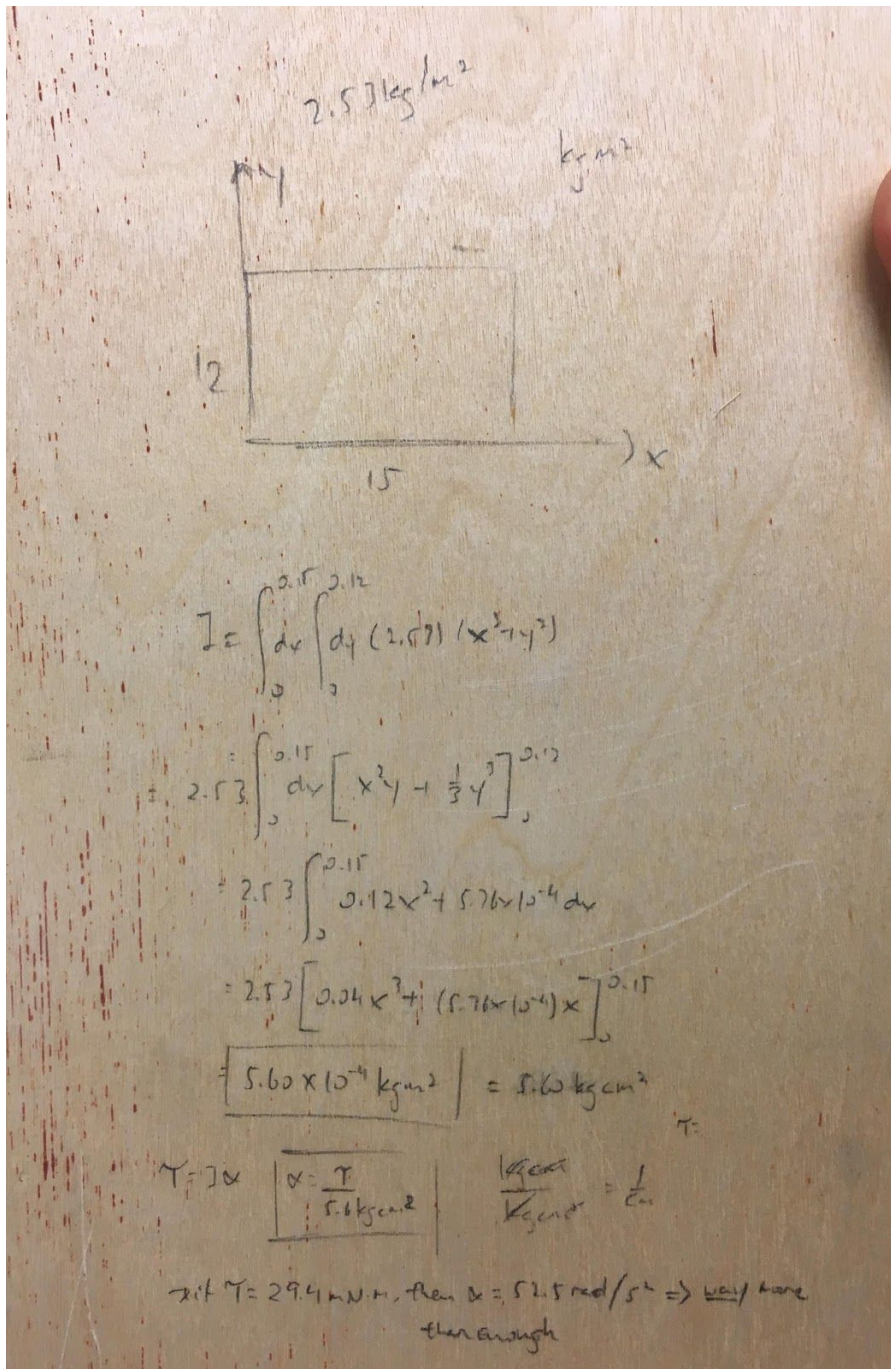 2.53 kg/m²
kg m²
y
12
x
15
I = ∫₀^0.15 dx ∫₀^0.12 dy (2.53) (x²+y²)
= 2.53 ∫₀^0.15 dx [x²y + ⅓y³]₀^0.12
= 2.53 ∫₀^0.15 0.12x² + 5.76x10⁻⁴ dx
= 2.53 [0.04x³ + (5.76x10⁻⁴)x]₀^0.15
= 5.60 x 10⁻⁴ kgm² = 5.60 kgcm²
τ=
τ = Iα α = τ/5.6kgcm² kgcm/kgcm² = 1/cm
→ if τ = 29.4 mN·m, then α = 52.5 rad/s² => way more
than enough